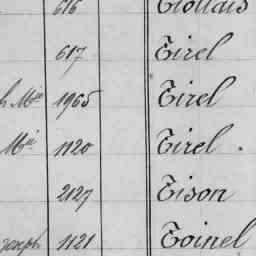 616 Tiollais
617 Tirel
h Mie 1965 Tirel
Mie 1120 Tirel .
2127 Tison
Joseph 1121 Toinel